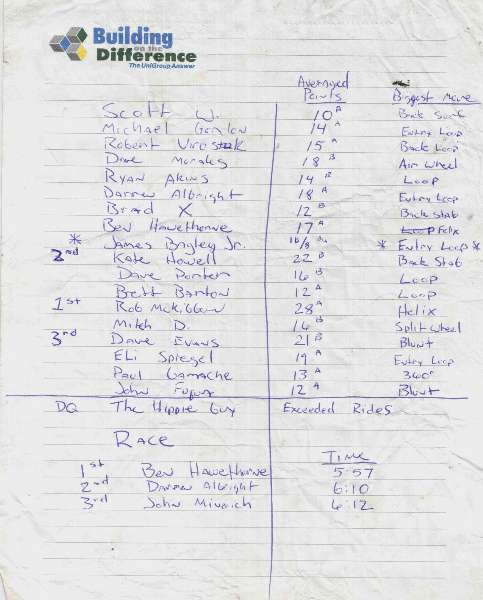 Building
on the
Difference
The UniGroup Answer
Averaged
Points Biggest Move
Scott W. 10 B Back Stab
Michael 14 A Entry Loop
Robert 15 A Back Loop
Dave Morales 18 B Air Wheel
Ryan Akins 14 B Loop
Darren Albright 18 A Entry Loop
Brad X 12 B Back Stab
Ben Hawethorne 17 A Helix
* James Bagley Jr. * Entry Loop *
2nd Kate Howell 22 B Back Stab
Dave 16 B Loop
Brett Barton 12 A Loop
1st Rob McKibben 28 A Helix
Mitch D. 14 B Split wheel
3rd Dave Evans 21 B Blunt
Eli Spiegel 19 A Entry Loop
Paul Gamache 13 A 360°
John 12 A Blunt
DQ The Hippie Guy Exceeded Rides
Race
Time
1st Ben Hawethorne 5:57
2nd Darren Albright 6:10
3rd John Minnich 6:12